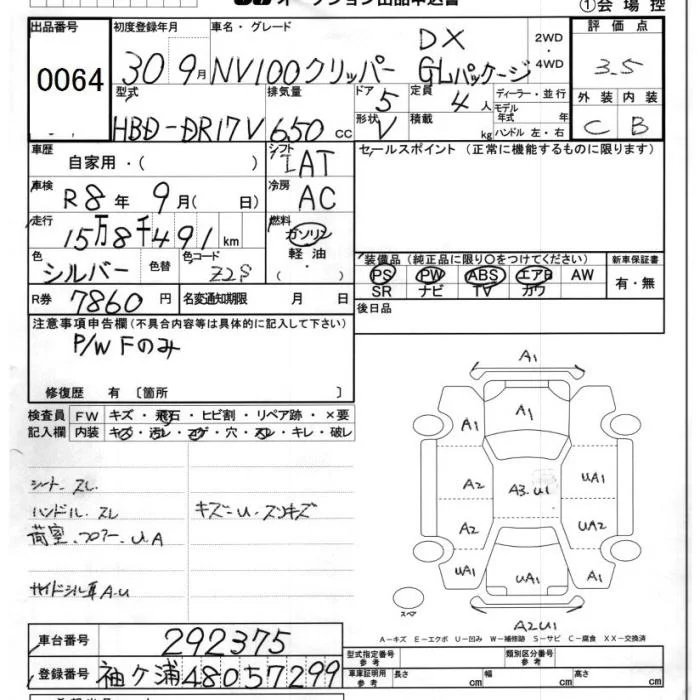 オークション出品申込書
①会場控
出品番号
0064
初度登録年月
30 9月
車名・グレード
NV100クリッパー DX GLパッケージ
2WD・4WD
評価点
3.5
外装 内装
C B
型式
HBD-DR17V
排気量
650 cc
ドア 5
定員 4人
ディーラー・並行
形状 V
積載 kg
モデル年式 年
ハンドル 左・右
車歴
自家用・( )
シフト
IAT
セールスポイント(正常に機能するものに限ります)
車検
R8年 9月( 日)
冷房
AC
走行
15万8千491km
燃料
ガソリン
軽油
( )
色
シルバー
色替
色コード
Z2S
装備品(純正品に限り○をつけてください)
PS PW ABS エアB AW
SR ナビ TV カワ
新車保証書
有・無
R券 7860円
名変通知期限 月 日
後日品
注意事項申告欄(不具合内容等は具体的に記入して下さい)
P/W Fのみ
修復歴 有 〔箇所 〕
検査員 FW キズ・飛石・ヒビ割・リペア跡・×要
記入欄 内装 キズ・汚レ・コゲ・穴・スレ・キレ・破レ
シート スレ
ハンドル スレ
キズ-U・スリキズ
荷室・フロアー U.A
サイドシル耳 A-U
A1
A1
A2 A3.U1 UA1
A2 UA2
UA1 UA1 A1
スペア
A2U1
A-キズ E-エクボ U-凹み W-補修跡 S-サビ C-腐食 XX-交換済
車台番号
292375
登録番号
袖ケ浦48057299
型式指定番号 参考
類別区分番号 参考
車庫証明用 参考
長さ cm 幅 cm 高さ cm